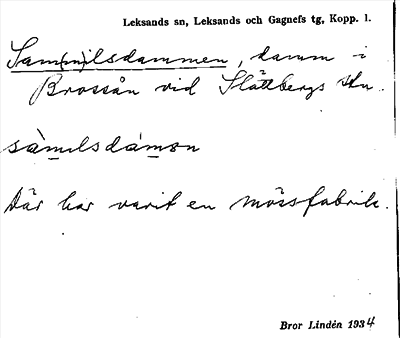 Leksands sn, Leksands och Gagnefs tg, Kopp. l.
Sam(m)ilsdammen, damm i
Brossån vid Slättbergs
sàmɩlsdámən
Där har varit en mössfabrik.
Bror Lindén 1934